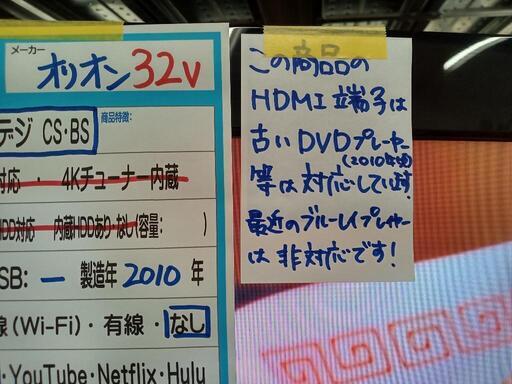 メーカー
オリオン 32V
デジ CS・BS
商品特徴:
対応 ・ 4Kチューナー内蔵
HDD対応 内蔵HDDあり・なし(容量: )
SB: ー 製造年 2010 年
線(Wi-Fi)・有線・なし
・YouTube・Netflix・Hulu
この商品の
HDMI 端子は
古いDVDプレーヤー
(2010年頃)
等は対応しています
最近のブルーレイプレイヤー
は非対応です!